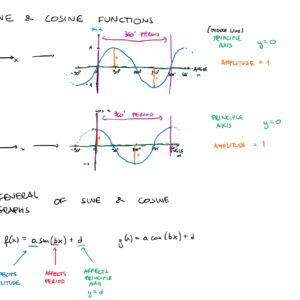 NE & COSINE FUNCTIONS
(MIDDLE LINE)
PRINCIPLE AXIS y=0
AMPLITUDE = 1
360° PERIOD
x
-90°
90°
ANGLE
cos x
PRINCIPLE AXIS y=0
AMPLITUDE = 1
360° PERIOD
x
-90°
90°
GENERAL OF SINE & COSINE
GRAPHS
f(x) = a sin(bx) + d g(x) = a cos(bx) + d
AFFECTS PERIOD
AFFECTS PRINCIPLE AXIS
y = d